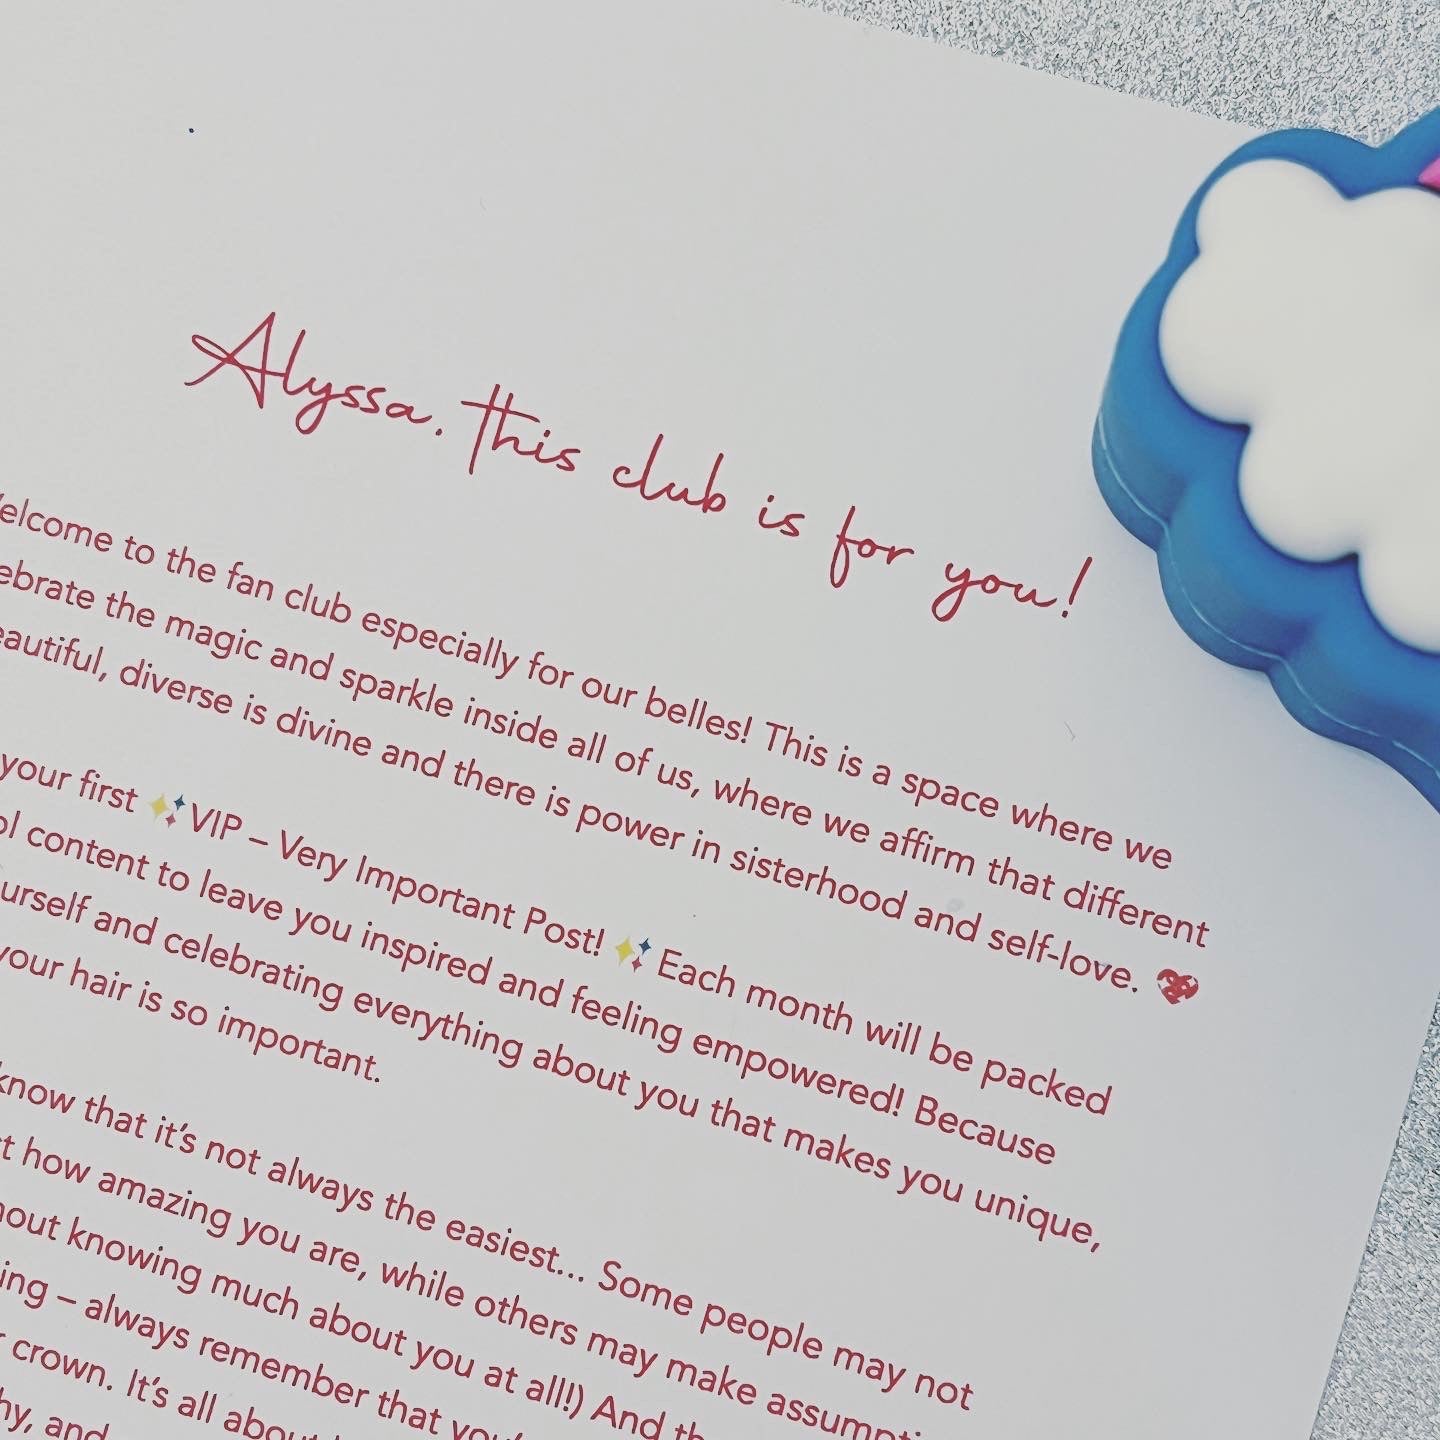 Alyssa. this club is for you!
elcome to the fan club especially for our belles! This is a space where we
ebrate the magic and sparkle inside all of us, where we affirm that different
eautiful, diverse is divine and there is power in sisterhood and self-love. 💖
your first ✨VIP – Very Important Post! ✨ Each month will be packed
ol content to leave you inspired and feeling empowered! Because
urself and celebrating everything about you that makes you unique,
your hair is so important.
know that it's not always the easiest... Some people may not
t how amazing you are, while others may make assumpti
out knowing much about you at all!) And th
ing – always remember that you'
crown. It's all about
hy, and